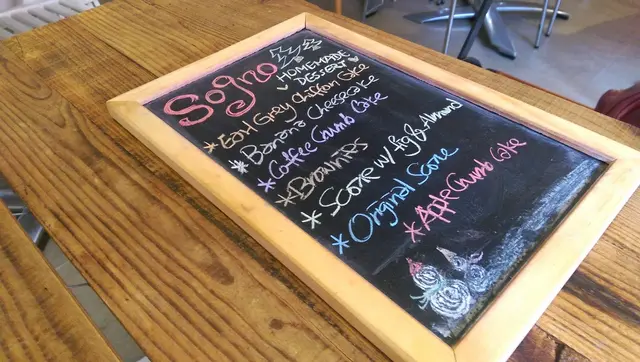 Sogno
HOMEMADE
DESSERT
* Earl Grey Chiffon Cake
* Banana Cheesecake
* Coffee Crumb Cake
* Brownies
* Scone w/ fig & Almond
* Original Scone
* Apple Crumb Cake